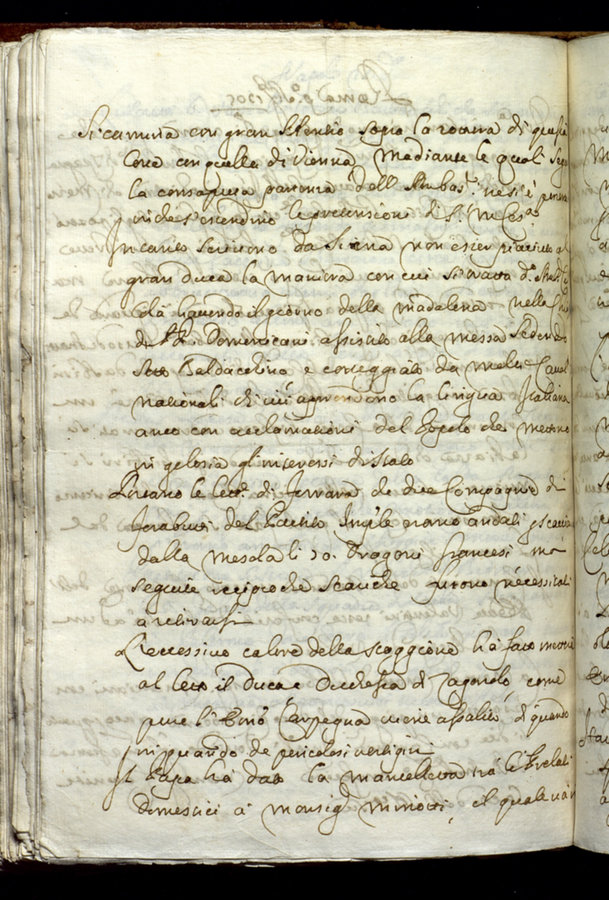 Si camina con gran silentio sopra la rotura di questa
Corte con quella di Vienna, Mediante le quali
la consaputa partenza dell' Ambas.re ne si è
in che s'estendino le pretensioni di S. M. Ces.a
In tanto scrivono da Siena non esser piaciuta al
gran duca la maniera con cui si tratta
colà havendo il giorno della Madalena nella
de PP. Domenicani assistito alla messa sedendo
sotto Baldachino e corteggiato da molti Caval
nationali di cui aprendono la lingua Italiana
anco con acclamationi del Popolo che mettono
in gelosia gl'interessi di stato
Portano le lett.e di Ferrara che due Compagnie di
del Partito Imp.le erano andati p scacciar
dalla Mesola li 70. Dragoni francesi ma
seguite reciproche scariche furono necessitati
a retirarsi
L'eccessivo calore della staggione hà fatto mettere
al letto il Duca e Duchessa di Zagarolo, come
pure l'Emo Carpegna viene assalito di quando
in quando da pericolosi vertigini
Il Papa hà dato la mantelletta trà li Prelati
Domestici à Monsig.r il quale và